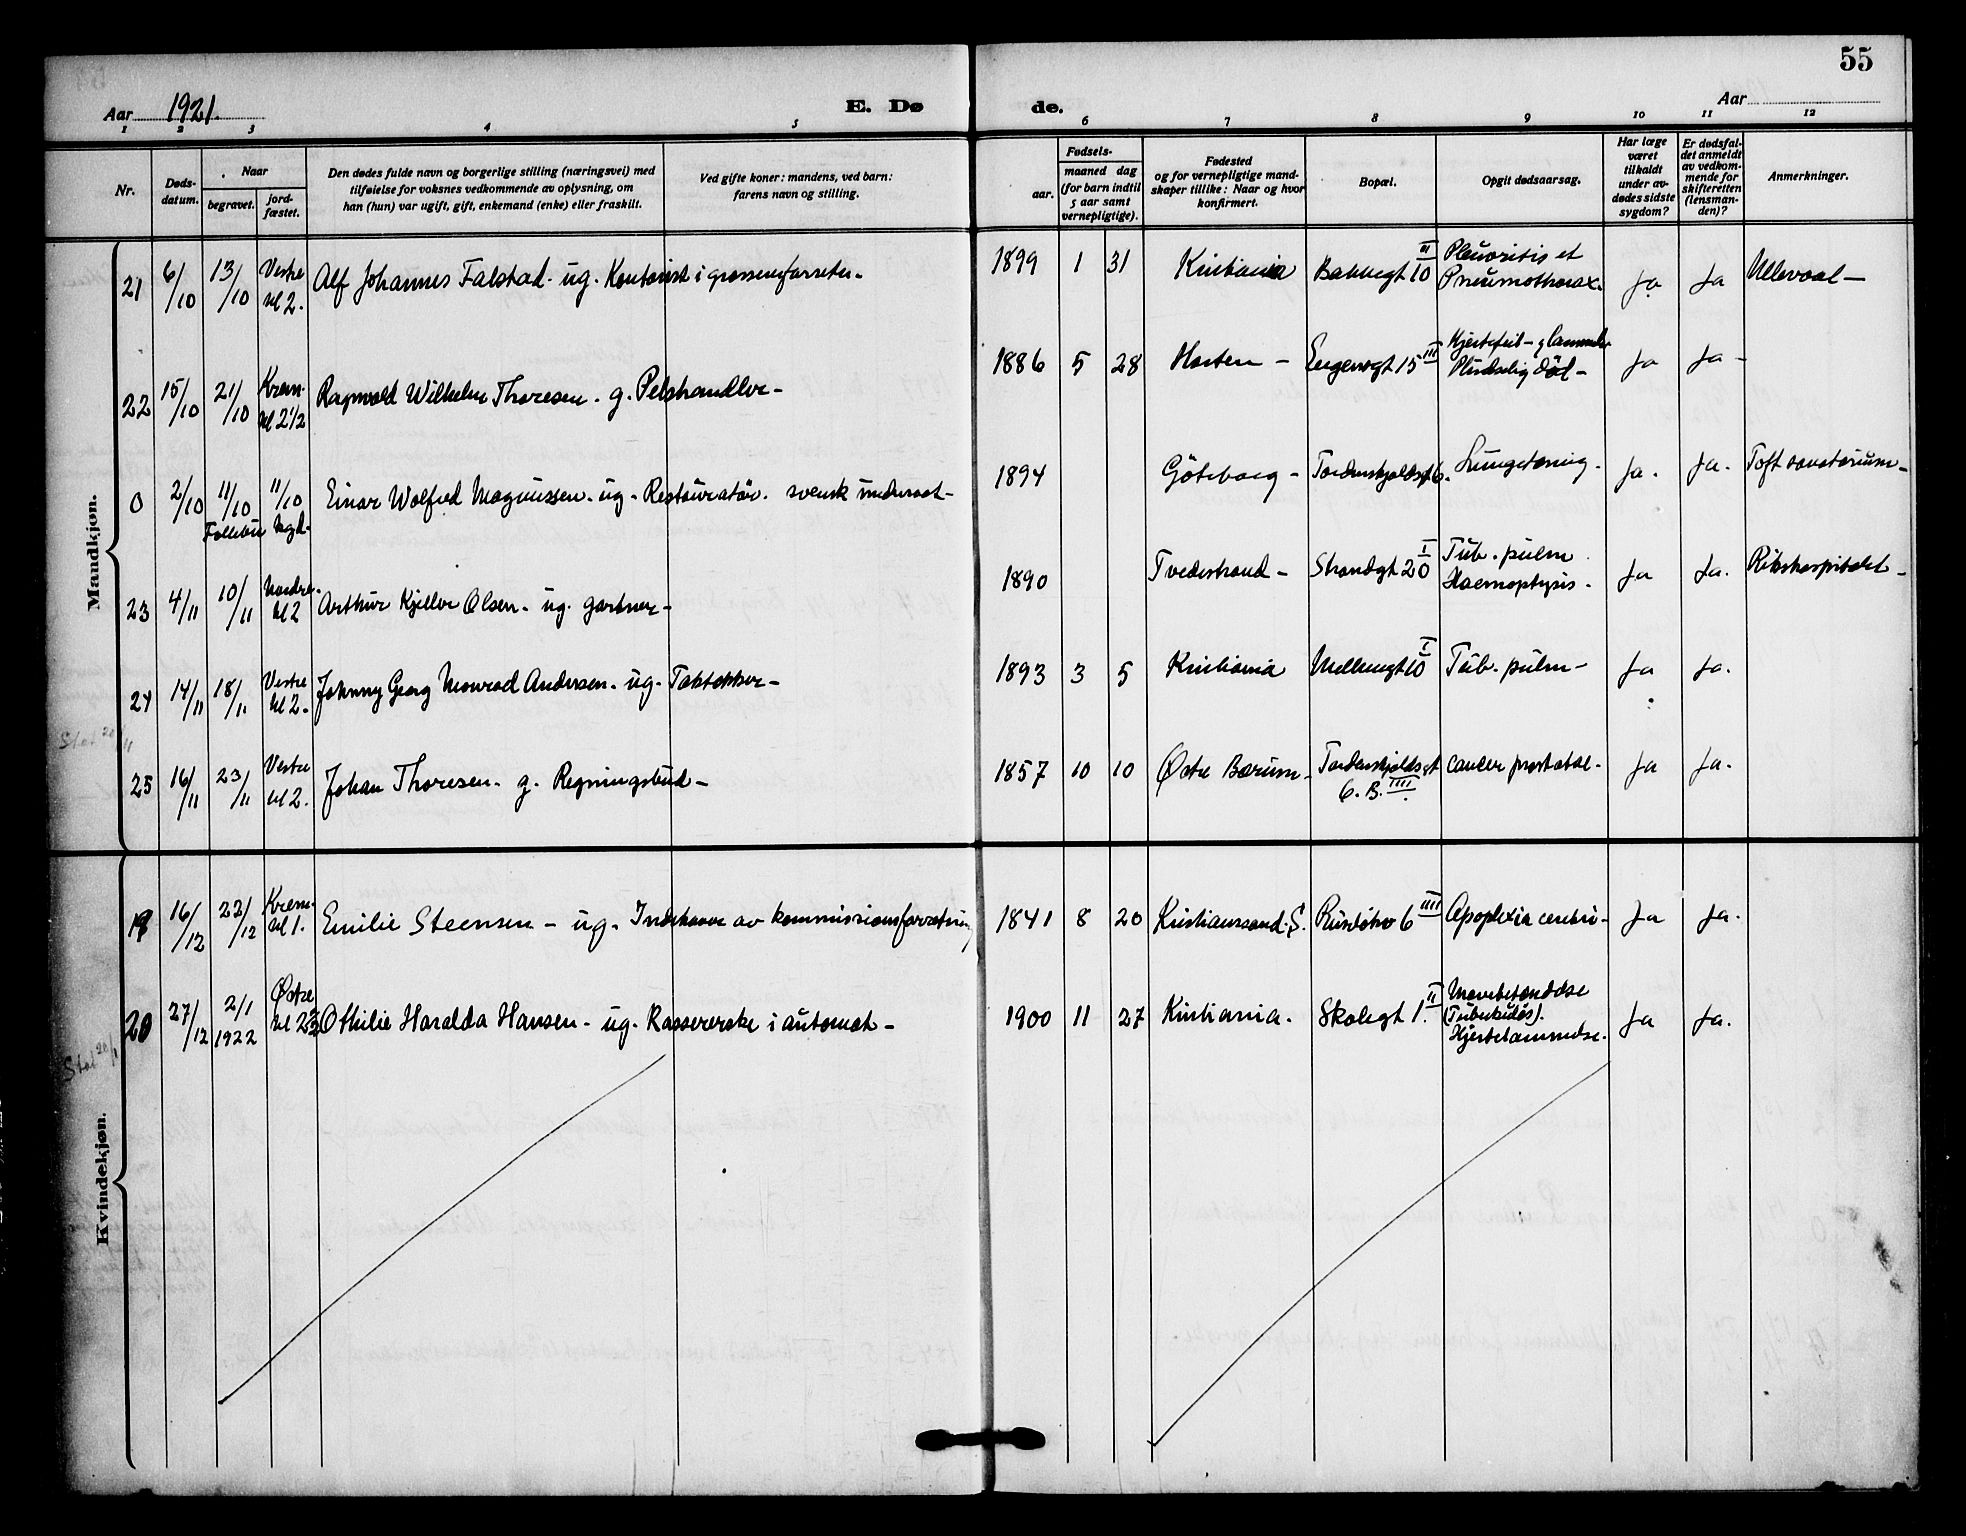 55
Aar 1921. E. Dø de. Aar
1 2 3 4 5 6 7 8 9 10 11 12
Nr.
Døds-
datum.
Naar
begravet.
jord-
fæstet.
Den dødes fulde navn og borgerlige stilling (næringsvei) med
tilføielse for voksnes vedkommende av oplysning, om
han (hun) var ugift, gift, enkemand (enke) eller fraskilt.
Ved gifte koner: mandens, ved barn:
farens navn og stilling.
Fødsels-
aar.
maaned dag
(for barn indtil
5 aar samt
vernepligtige).
Fødested
og for vernepligtige mand-
skaper tillike: Naar og hvor
konfirmert.
Bopæl.
Opgit dødsaarsag.
Har læge
været
tilkaldt
under av-
dødes sidste
sygdom?
Er dødsfal-
det anmeldt
av vedkom-
mende for
skifteretten
(lensman-
den)?
Anmerkninger.
Mandkjøn.
21 6/10 13/10 Vestre kl 2. Alf Johannes Falstad. ug. Kontorist i grossererforretn. 1899 1 31 Kristiania Bakkegt 10 III Pleuritis et Pneumothorax. Ja Ja Ullevaal
22 15/10 21/10 Krem. kl 2 1/2 Ragnvald Wilhelm Thoresen. g. Pelshandler 1886 5 28 Horten Engensgt 15 III Hjertefeil Pludselig død Ja Ja
0 2/10 11/10 11/10 Einar Wolfred Magnussen. ug. Restauratør. svensk undersaat 1894 Göteborg Tordenskjoldsgt 6. Lungetæring. Ja. Ja. Toft sanatorium
23 4/11 10/11 Nordre kl 2 Arthur Kjeller Olsen. ug. gartner 1890 Tvedestrand Strandgt 20 I Tub. pulm. Haemoptysis. Ja Ja. Rikshospitalet
24 14/11 18/11 Vestre kl 2. Johnny Georg Monrad Andersen. ug. Taktekker 1893 3 5 Kristiania Munkengt 10 I Tub. pulm Ja Ja.
Stat 20/11
25 16/11 23/11 Vestre kl 2. Johan Thoresen. g. Regningsbud 1857 10 10 Østre Bærum Tordenskjoldsgt 6. B. IIII cancer prostatae. Ja Ja.
Kvindekjøn.
19 16/12 22/12 Krem. kl 1. Emilie Steensen ug. Indehaver av kommissionsforretning 1841 8 20 Kristianssand. S. Ruseløkv 6 IIII Apoplexia cerebri. Ja Ja.
20 27/12 2/1 1922 Østre kl 2 Othilie Haralda Hansen. ug. Kassererske i automat 1900 11 27 Kristiania. Skolegt 1. II Mavebetændelse (Tuberkuløs). Hjertelammelse. Ja Ja.
Stat 20/1